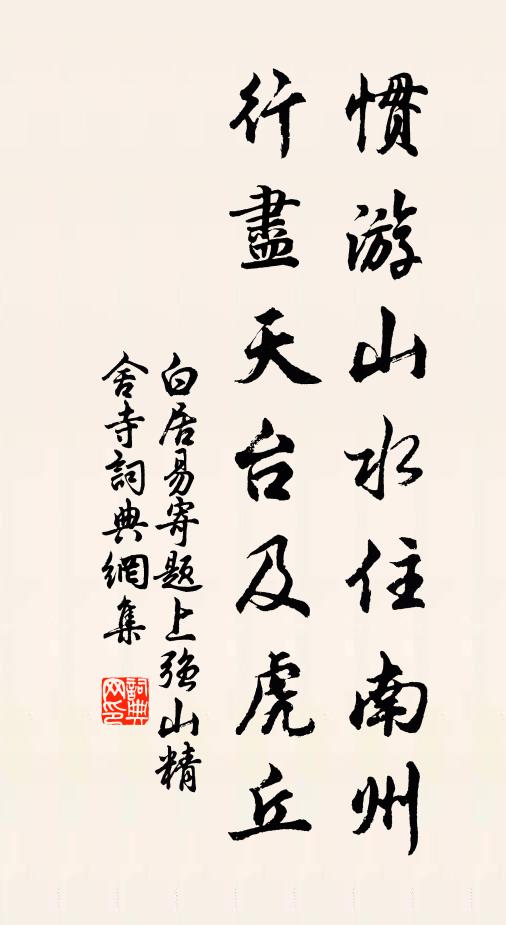 慣游山水住南州
行盡天台及虎丘
白居易寄題上強山精
舍寺詞典網集
詞典
网印